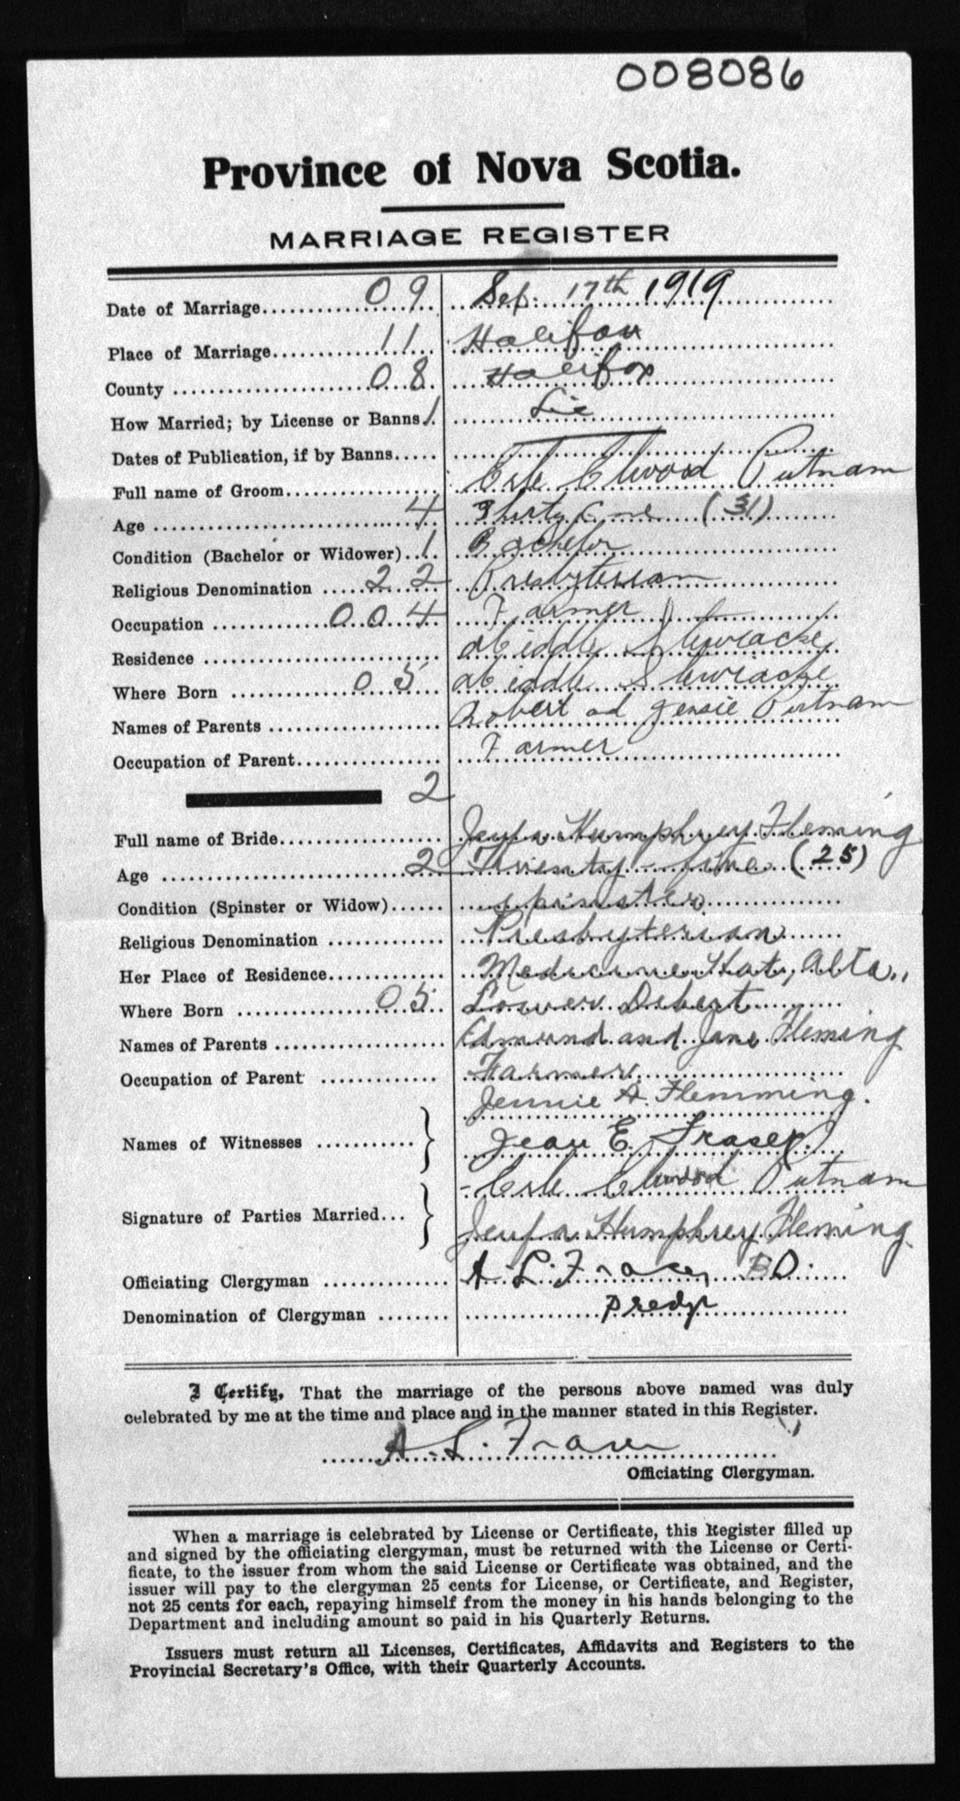 008086
Province of Nova Scotia.
MARRIAGE REGISTER
Date of Marriage 09 Sep. 17th 1919
Place of Marriage 11 Halifax
County 08 Halifax
How Married; by License or Banns 1 Lic
Dates of Publication, if by Banns
Full name of Groom Elwood Putnam
Age 4 Thirty One (31)
Condition (Bachelor or Widower) 1 Bachelor
Religious Denomination 22 Presbyterian
Occupation 004 Farmer
Residence Middle Stewiacke
Where Born 05 Middle Stewiacke
Names of Parents Robert ad Jensie Putnam
Occupation of Parent Farmer
2
Full name of Bride Humphrey Fleming
Age 2 Twenty-five (25)
Condition (Spinster or Widow) spinster
Religious Denomination Presbyterian
Her Place of Residence Medicine Hat, Alta.,
Where Born 05 Lower Debert
Names of Parents Edmund and Jane Fleming
Occupation of Parent Farmer
Jennie A. Flemming.
Names of Witnesses } Jean E. Fraser
Elwood Putnam
Signature of Parties Married... }
Humphrey Fleming
Officiating Clergyman A. L. Fraser BD.
Denomination of Clergyman
I Certify, That the marriage of the persons above named was duly
celebrated by me at the time and place and in the manner stated in this Register.
A. L. Fraser
Officiating Clergyman.
When a marriage is celebrated by License or Certificate, this Register filled up
and signed by the officiating clergyman, must be returned with the License or Certi-
ficate, to the issuer from whom the said License or Certificate was obtained, and the
issuer will pay to the clergyman 25 cents for License, or Certificate, and Register,
not 25 cents for each, repaying himself from the money in his hands belonging to the
Department and including amount so paid in his Quarterly Returns.
Issuers must return all Licenses, Certificates, Affidavits and Registers to the
Provincial Secretary's Office, with their Quarterly Accounts.